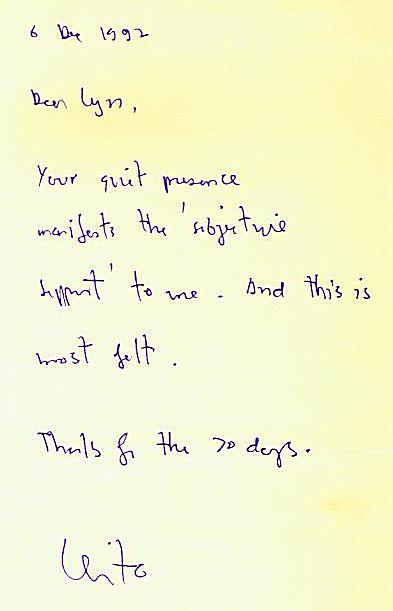 6 Dec 1992
Dear Lyn,
Your quiet presence
manifests the 'subjective
support' to me. And this is
most felt.
Thanks for the 70 days.